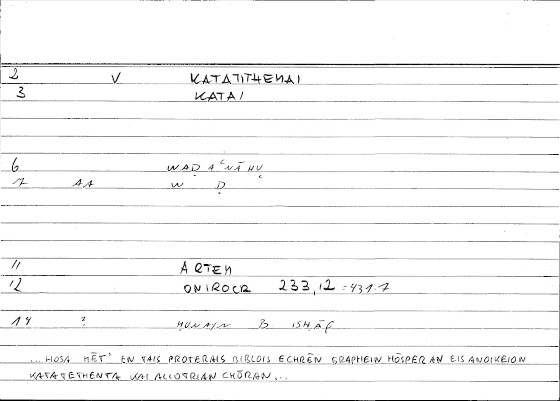 2 V KATATITHENAI
3 KATAI
6 WAḌAʿNĀHU
7 AA W Ḍ
11 ARTEM
12 ONIROCR 233,12 = 431.7
14 ? ḤUNAYN B ISḤĀQ
...HOSA MĒT' EN TAIS PROTERAIS BIBLOIS ECHRĒN GRAPHEIN HŌSPER AN EIS ANOIKEION
KATATETHENTA KAI ALLOTRIAN CHŌRAN...